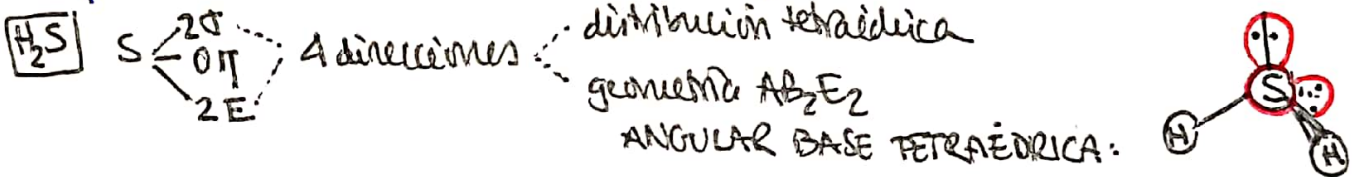 H₂S S 2σ 4 direcciones distribución tetraédrica
0π
2E geometría AB₂E₂
ANGULAR BASE TETRAÉDRICA:
S
H
H